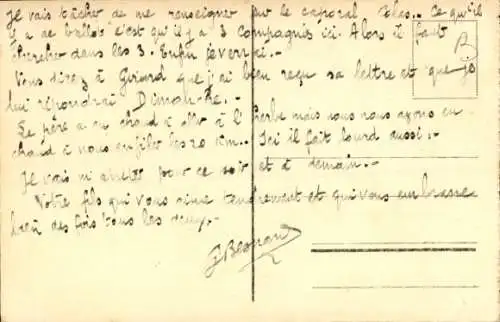 Je vais tâcher de me renseigner sur le caporal . Ce qu'il
y a de ballot c'est qu'il y a 3 compagnies ici. Alors il faut
chercher dans les 3. Enfin je verrai.-
Vous direz à Girard que j'ai bien reçu sa lettre et que je
lui répondrai Dimanche.-
Le père a eu chaud à aller à l'herbe mais nous nous avons eu
chaud à nous enfiler les 20 km.. Ici il fait lourd aussi.-
Je vais m'arrêter pour ce soir et à demain.-
Votre fils qui vous aime tendrement et qui vous embrasse
bien des fois tous les deux.-
B